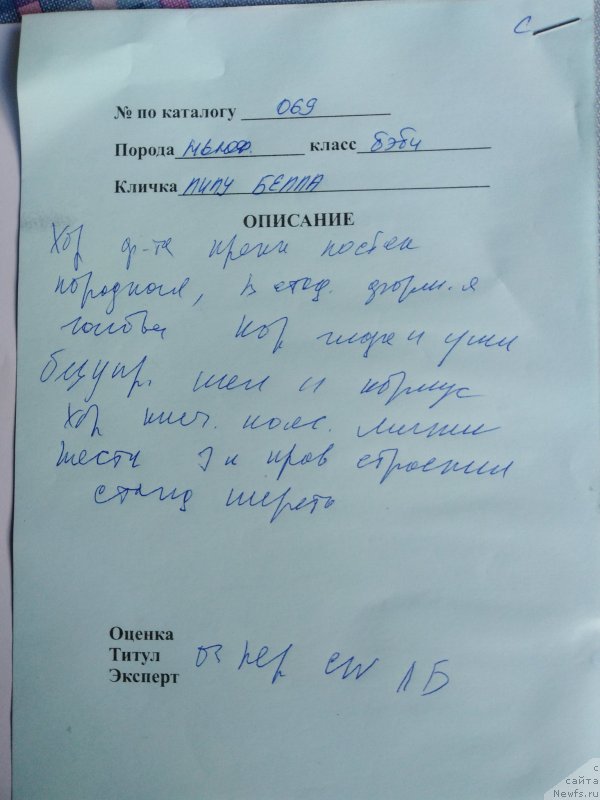 С
№ по каталогу 069
Порода Ньюф. класс бэби
Кличка ПИПУ БЕЛЛА
ОПИСАНИЕ
Хор ф-та крепк костяк
породная, в стад. форм-я
голова Хор глаза и уши
безупр. шея и корпус
Хор линии
шести прав строения
станд шерсть
Оценка
Титул
Эксперт
оч пер CW ЛБ
с
сайта
Newfs.ru